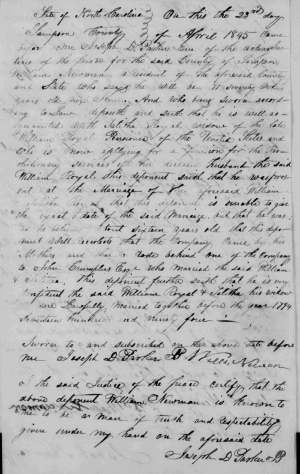 State of North Carolina } On this the 23rd day
Sampson County } of April 1845 Came
before me Joseph D. Parker one of the acting Jus-
tices of the peace for the said County of Sampson
William Newman a resident of the aforesaid County
and State who says he will be seventy
years old And who being Sworn accord-
ing to law deposeth and saith that he is well ac-
quainted with Tabitha Royal widow of the late
William Royal Pensioner of the United States and
who is now applying for a Pension for the Rev-
olutionary Services of her deceased husband the said
William Royal, this deponent saith that he was pres-
ent at the Marriage of the aforesaid William
that this deponent is unable to give
the exact date of the said Marriage but that he was
about sixteen years old that this dep-
onent Well recollects that the Company Came by his
Mothers and that he rode behind one of the Company
to John Crumpler Esqr who married the said William
& Tabitha. This deponent further saith that he is very
confident the said William Royal & Tabitha his widow
were Lawfully Married together before the year 1794
Seventeen hundred and ninety four
Sworn to and subscribed on the above date before
me Joseph D. Parker JP William Newman
I the said Justice of the peace certify that the
above deponent William Newman is known to
me to be a man of truth and respectability
given under my hand on the aforesaid date
Joseph D. Parker JP